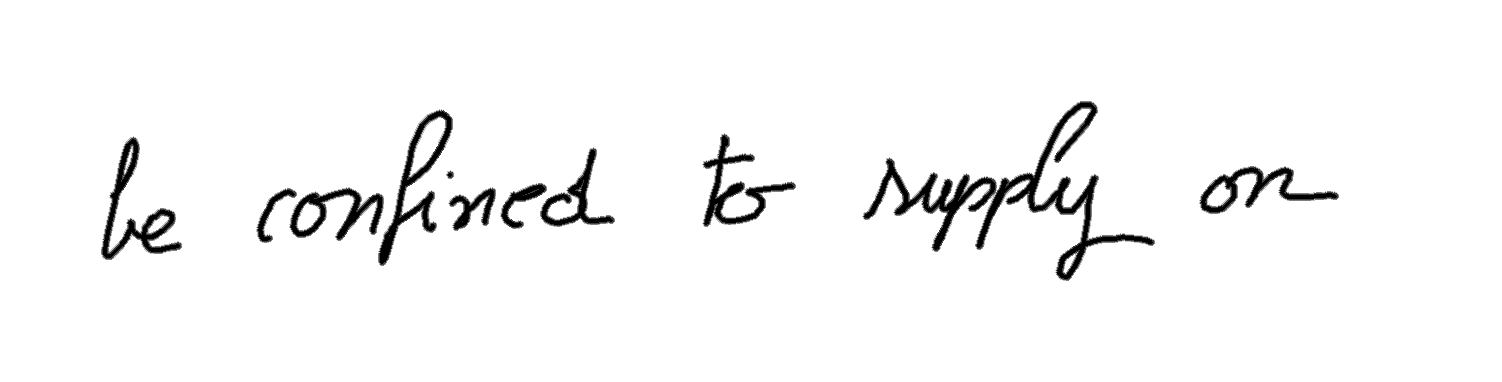 be confined to supply on